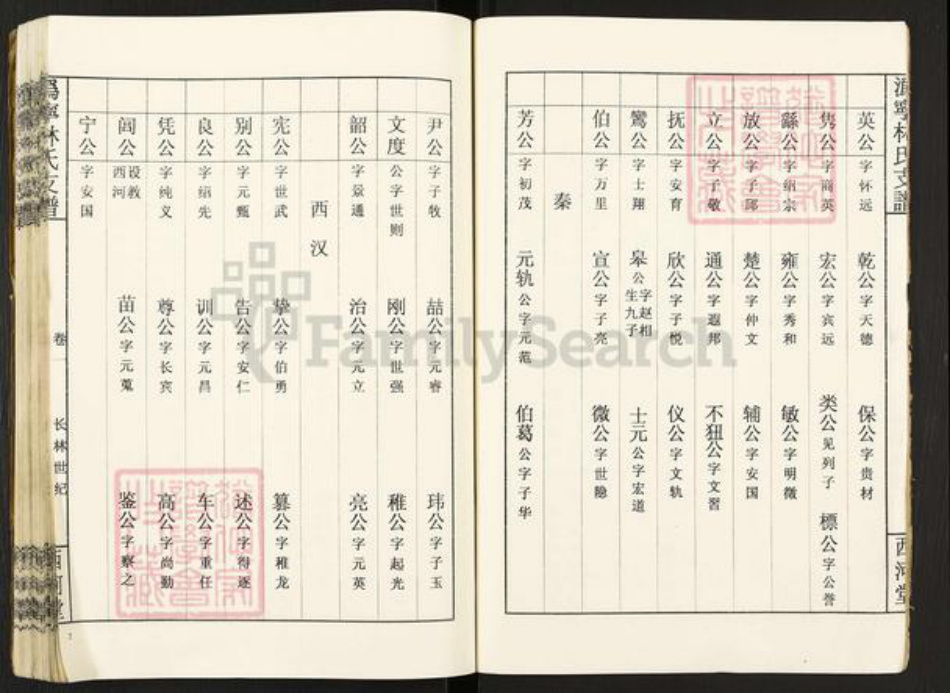 宁林氏支谱
英公 字怀远 乾公 字天德 保公 字贵材
隽公 字商英 宏公 字宾远 类公 见列子 標公 字公誉
繇公 字绍宗 雍公 字秀和 敏公 字明徵
放公 字子 楚公 字仲文 辅公 字安国
立公 字子敬 通公 字遐邦 不狃公 字文習
抚公 字安育 欣公 字子悦 仪公 字文轨
鸾公 字士翔 皋公 字赵相 生九子 士元公 字宏道
伯公 字万里 宣公 字子亮 微公 字世隐
秦
芳公 字初茂 元轨公 字元范 伯葛公 字子华
西河堂
尹公 字子牧 喆公 字元睿 玮公 字子玉
文度公 字世则 刚公 字世强 稚公 字起光
韶公 字景通 治公 字元立 亮公 字元英
西汉
宪公 字世武 挚公 字伯勇 篡公 字稚龙
别公 字元甄 告公 字安仁 述公 字得逐
良公 字绍先 训公 字元昌 车公 字重任
凭公 字纯义 尊公 字长宾 高公 字尚勤
闾公 设教西河 苗公 字元蒐 鉴公 字察之
宁公 字安国
宁林氏支谱
卷一
长林世纪
西河堂
FamilySearch